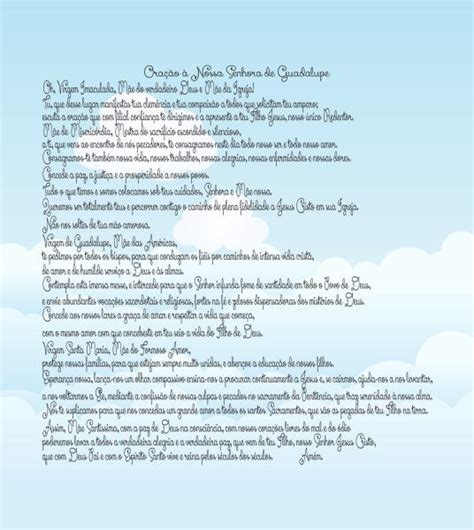 Oração à Nossa Senhora de Guadalupe
Oh, Virgem Imaculada, Mãe do verdadeiro Deus e Mãe da Igreja!
Tu, que desse lugar manifestas tua clemência e tua compaixão a todos que solicitam teu amparo;
escuta a oração que com filial confiança te dirigimos e a apresente a teu Filho Jesus, nosso único Redentor.
Mãe de Misericórdia, Mestra do sacrifício escondido e silencioso,
a ti, que vens ao encontro de nós pecadores, te consagramos neste dia todo nosso ser e todo nosso amor.
Consagramos-te também nossa vida, nossos trabalhos, nossas alegrias, nossas enfermidades e nossas dores.
Concede a paz, a justiça e a prosperidade a nossos povos.
Tudo o que temos e somos colocamos sob teus cuidados, Senhora e Mãe nossa.
Queremos ser totalmente teus e percorrer contigo o caminho de plena fidelidade a Jesus Cristo em sua Igreja.
Não nos soltes de tua mão amorosa.
Virgem de Guadalupe, Mãe das Américas,
te pedimos por todos os bispos, para que conduzam os fiéis por caminhos de intensa vida cristã,
de amor e de humilde serviço a Deus e às almas.
Contempla esta imensa messe, e intercede para que o Senhor infunda fome de santidade em todo o Povo de Deus,
e envie abundantes vocações sacerdotais e religiosas, fortes na fé e zelosos dispensadoras dos mistérios de Deus.
Concede aos nossos lares a graça de amar e respeitar a vida que começa,
com o mesmo amor com que concebeste em teu seio a vida do Filho de Deus.
Virgem Santa Maria, Mãe do Formoso Amor,
protege nossas famílias, para que estejam sempre muito unidas, e abençoe a educação de nossos filhos.
Esperança nossa, lança-nos um olhar compassivo ensina-nos a procurar continuamente a Jesus e, se cairmos, ajuda-nos a nos levantar,
a nos voltarmos a Ele, mediante a confissão de nossas culpas e pecados no sacramento da Penitência, que traz serenidade à nossa alma.
Nós te suplicamos para que nos concedas um grande amor a todos os santos Sacramentos, que são as pegadas de teu Filho na terra.
Assim, Mãe Santíssima, com a paz de Deus na consciência, com nossos corações livres do mal e do ódio
poderemos levar a todos a verdadeira alegria e a verdadeira paz, que vem de teu Filho, nosso Senhor Jesus Cristo,
que com Deus Pai e com o Espírito Santo vive e reina pelos séculos dos séculos. Amém.